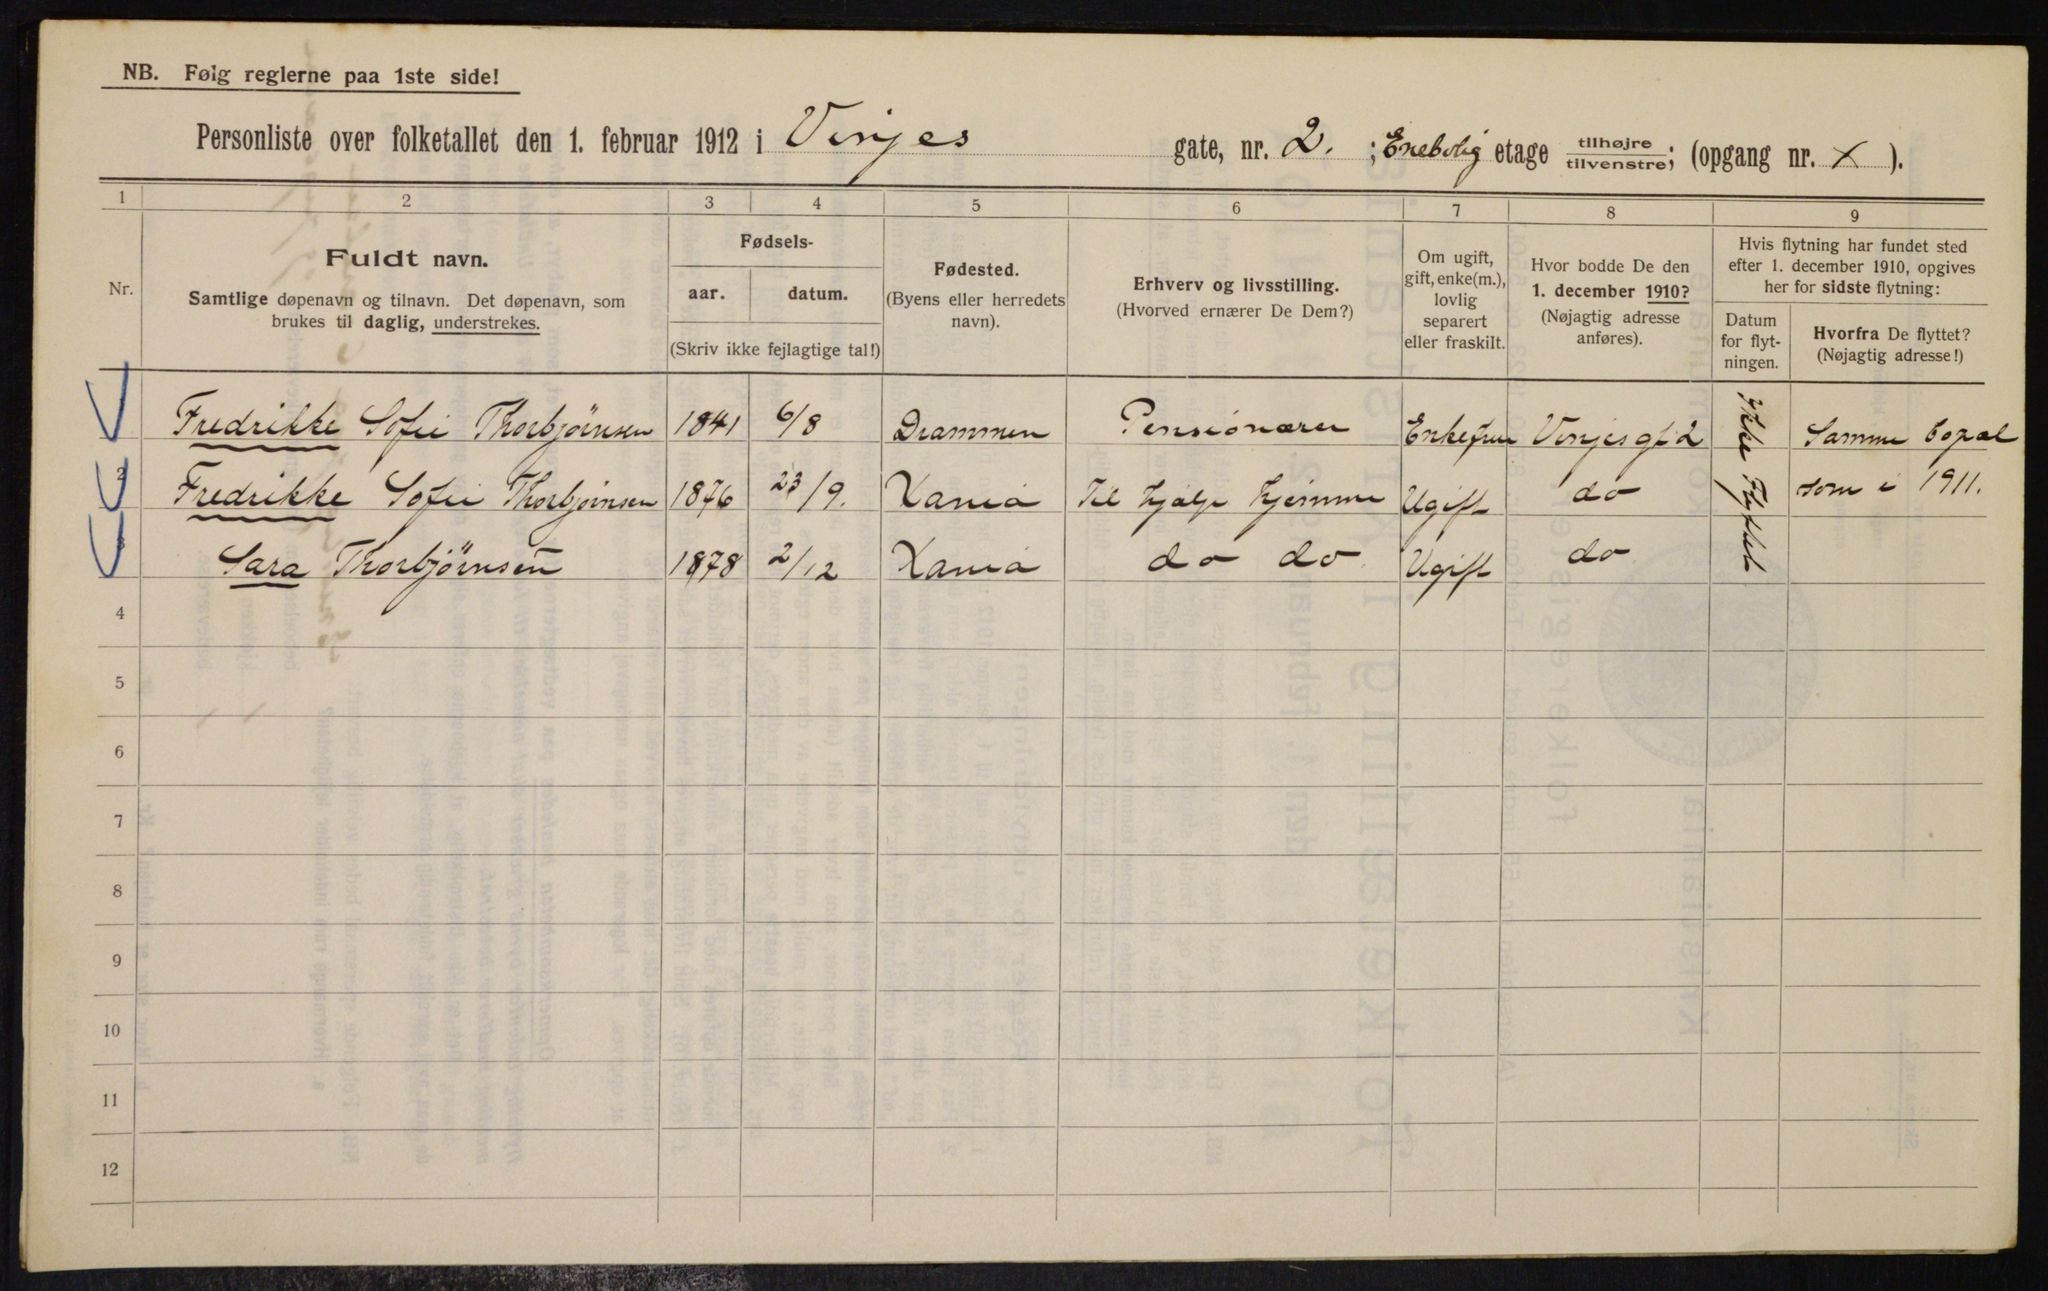 NB. Følg reglerne paa 1ste side!
Personliste over folketallet den 1. februar 1912 i Vinjes gate, nr. 2. ; Enebolig etage tilhøjre tilvenstre; (opgang nr. X ).
1 2 3 4 5 6 7 8 9
Nr.
Fuldt navn.
Samtlige døpenavn og tilnavn. Det døpenavn, som
brukes til daglig, understrekes.
Fødsels-
aar. datum.
(Skriv ikke fejlagtige tal!)
Fødested.
(Byens eller herredets
navn).
Erhverv og livsstilling.
(Hvorved ernærer De Dem?)
Om ugift,
gift, enke(m.),
lovlig
separert
eller fraskilt.
Hvor bodde De den
1. december 1910?
(Nøjagtig adresse
anføres).
Hvis flytning har fundet sted
efter 1. december 1910, opgives
her for sidste flytning:
Datum
for flyt-
ningen.
Hvorfra De flyttet?
(Nøjagtig adresse!)
Fredrikke Sofie Thorbjørnsen 1841 6/8 Drammen Pensionærer Enkefrue Vinjesgt 2 Ikke Flyttet Samme bopæl
2 Fredrikke Sofie Thorbjørnsen 1876 23/9. Xania Til hjælp hjemme Ugift do som i 1911.
3 Sara Thorbjørnsen 1878 2/12 Xania do do Ugift do
4
5
6
7
8
9
10
11
12